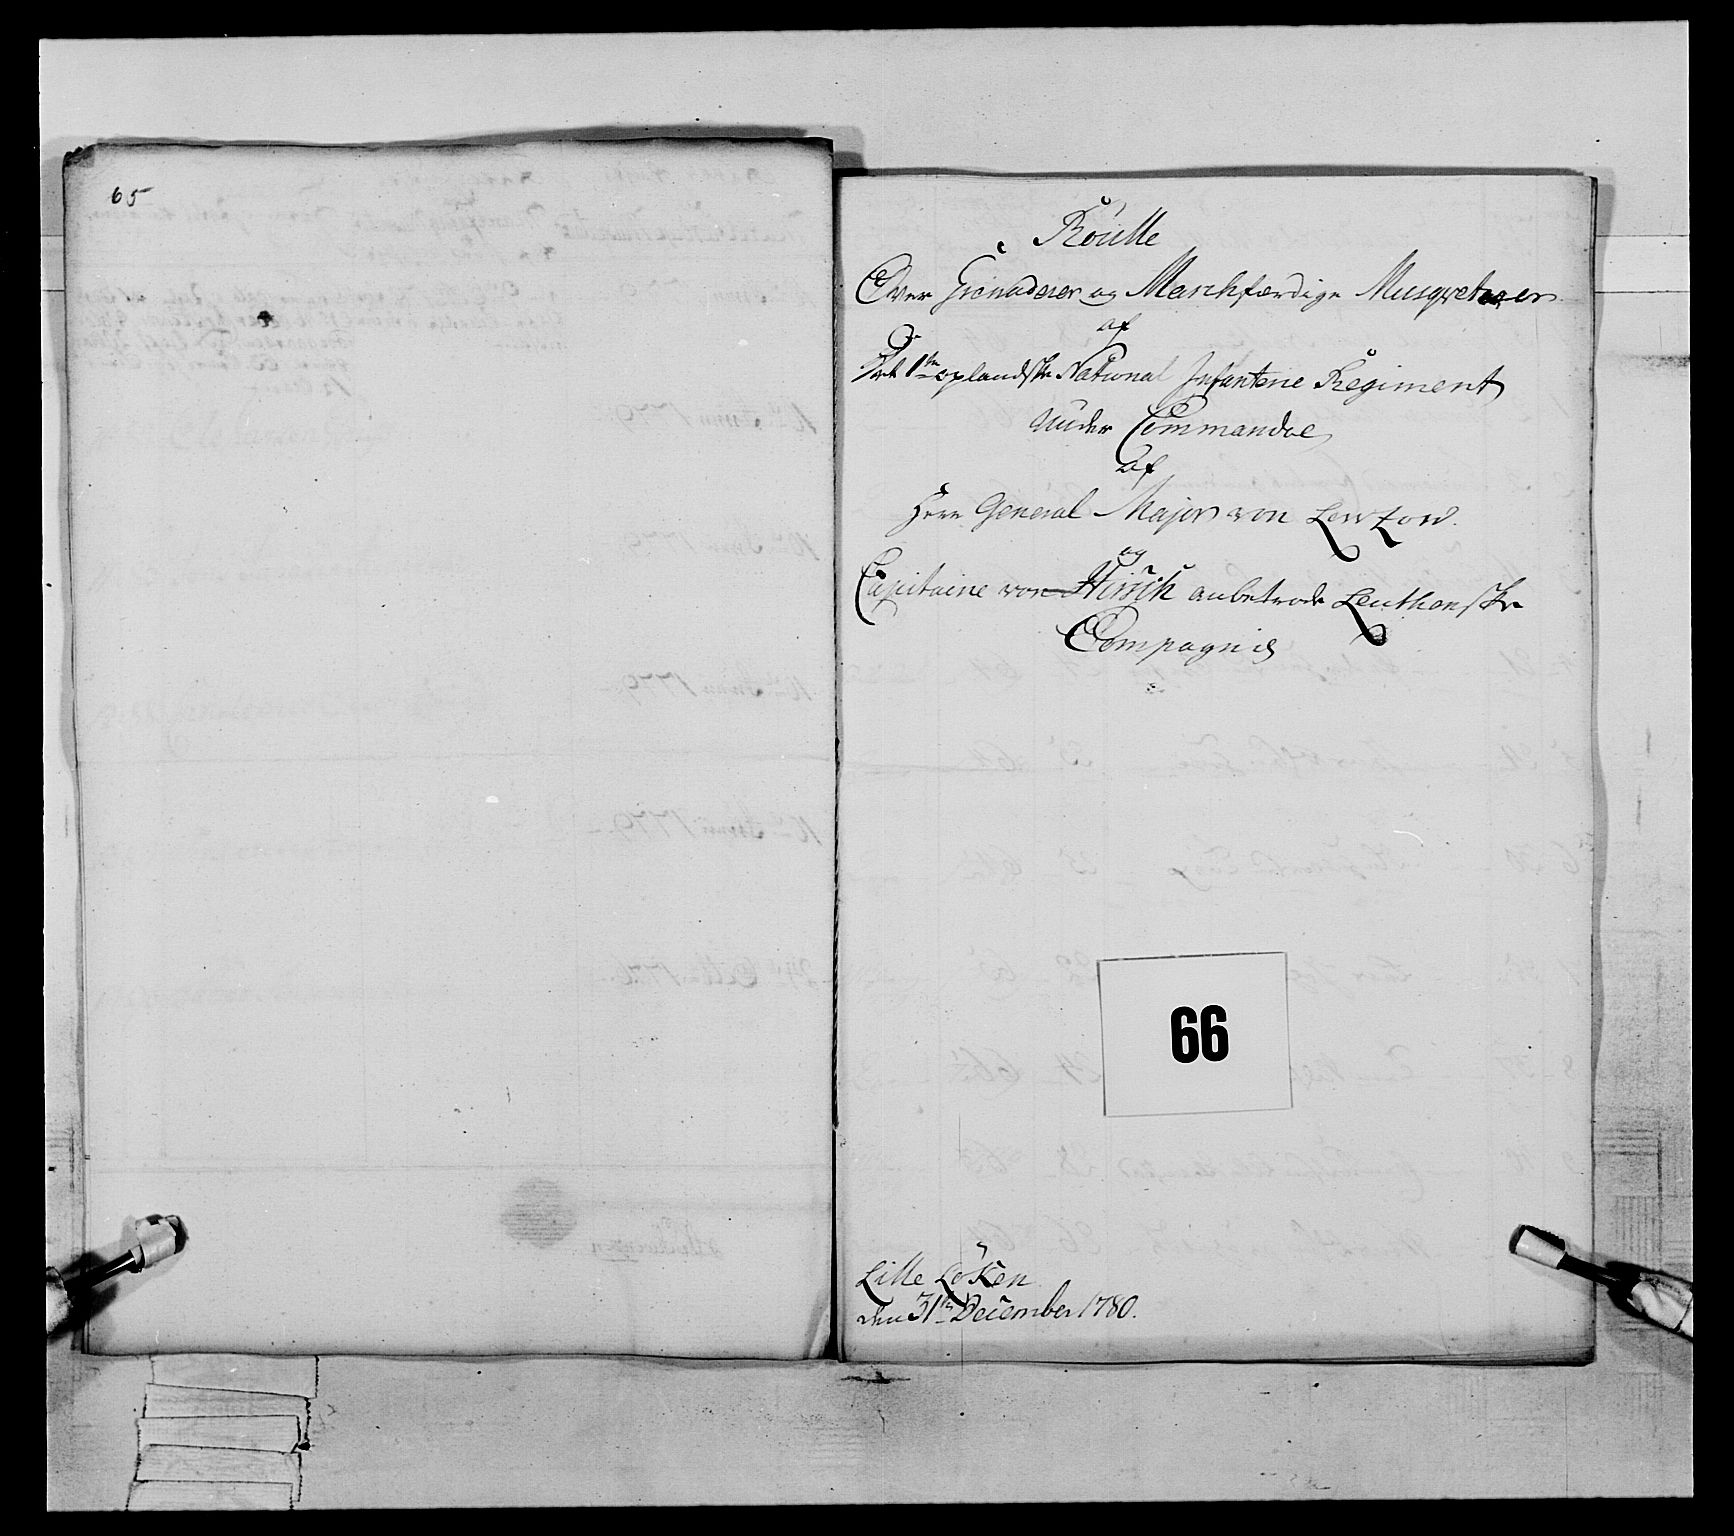 65
Roulle
Over Grenaderer og Marchfærdige Musqveterer
af
Det 1te oplandske National Infanterie Regiment
under Commandoe
af
Herr General Major von Lewtzow.
og
Capitaine von Hirsch anbetroede Leuthenske
Compagnie
66
Lille Løken
den 31te December 1780.